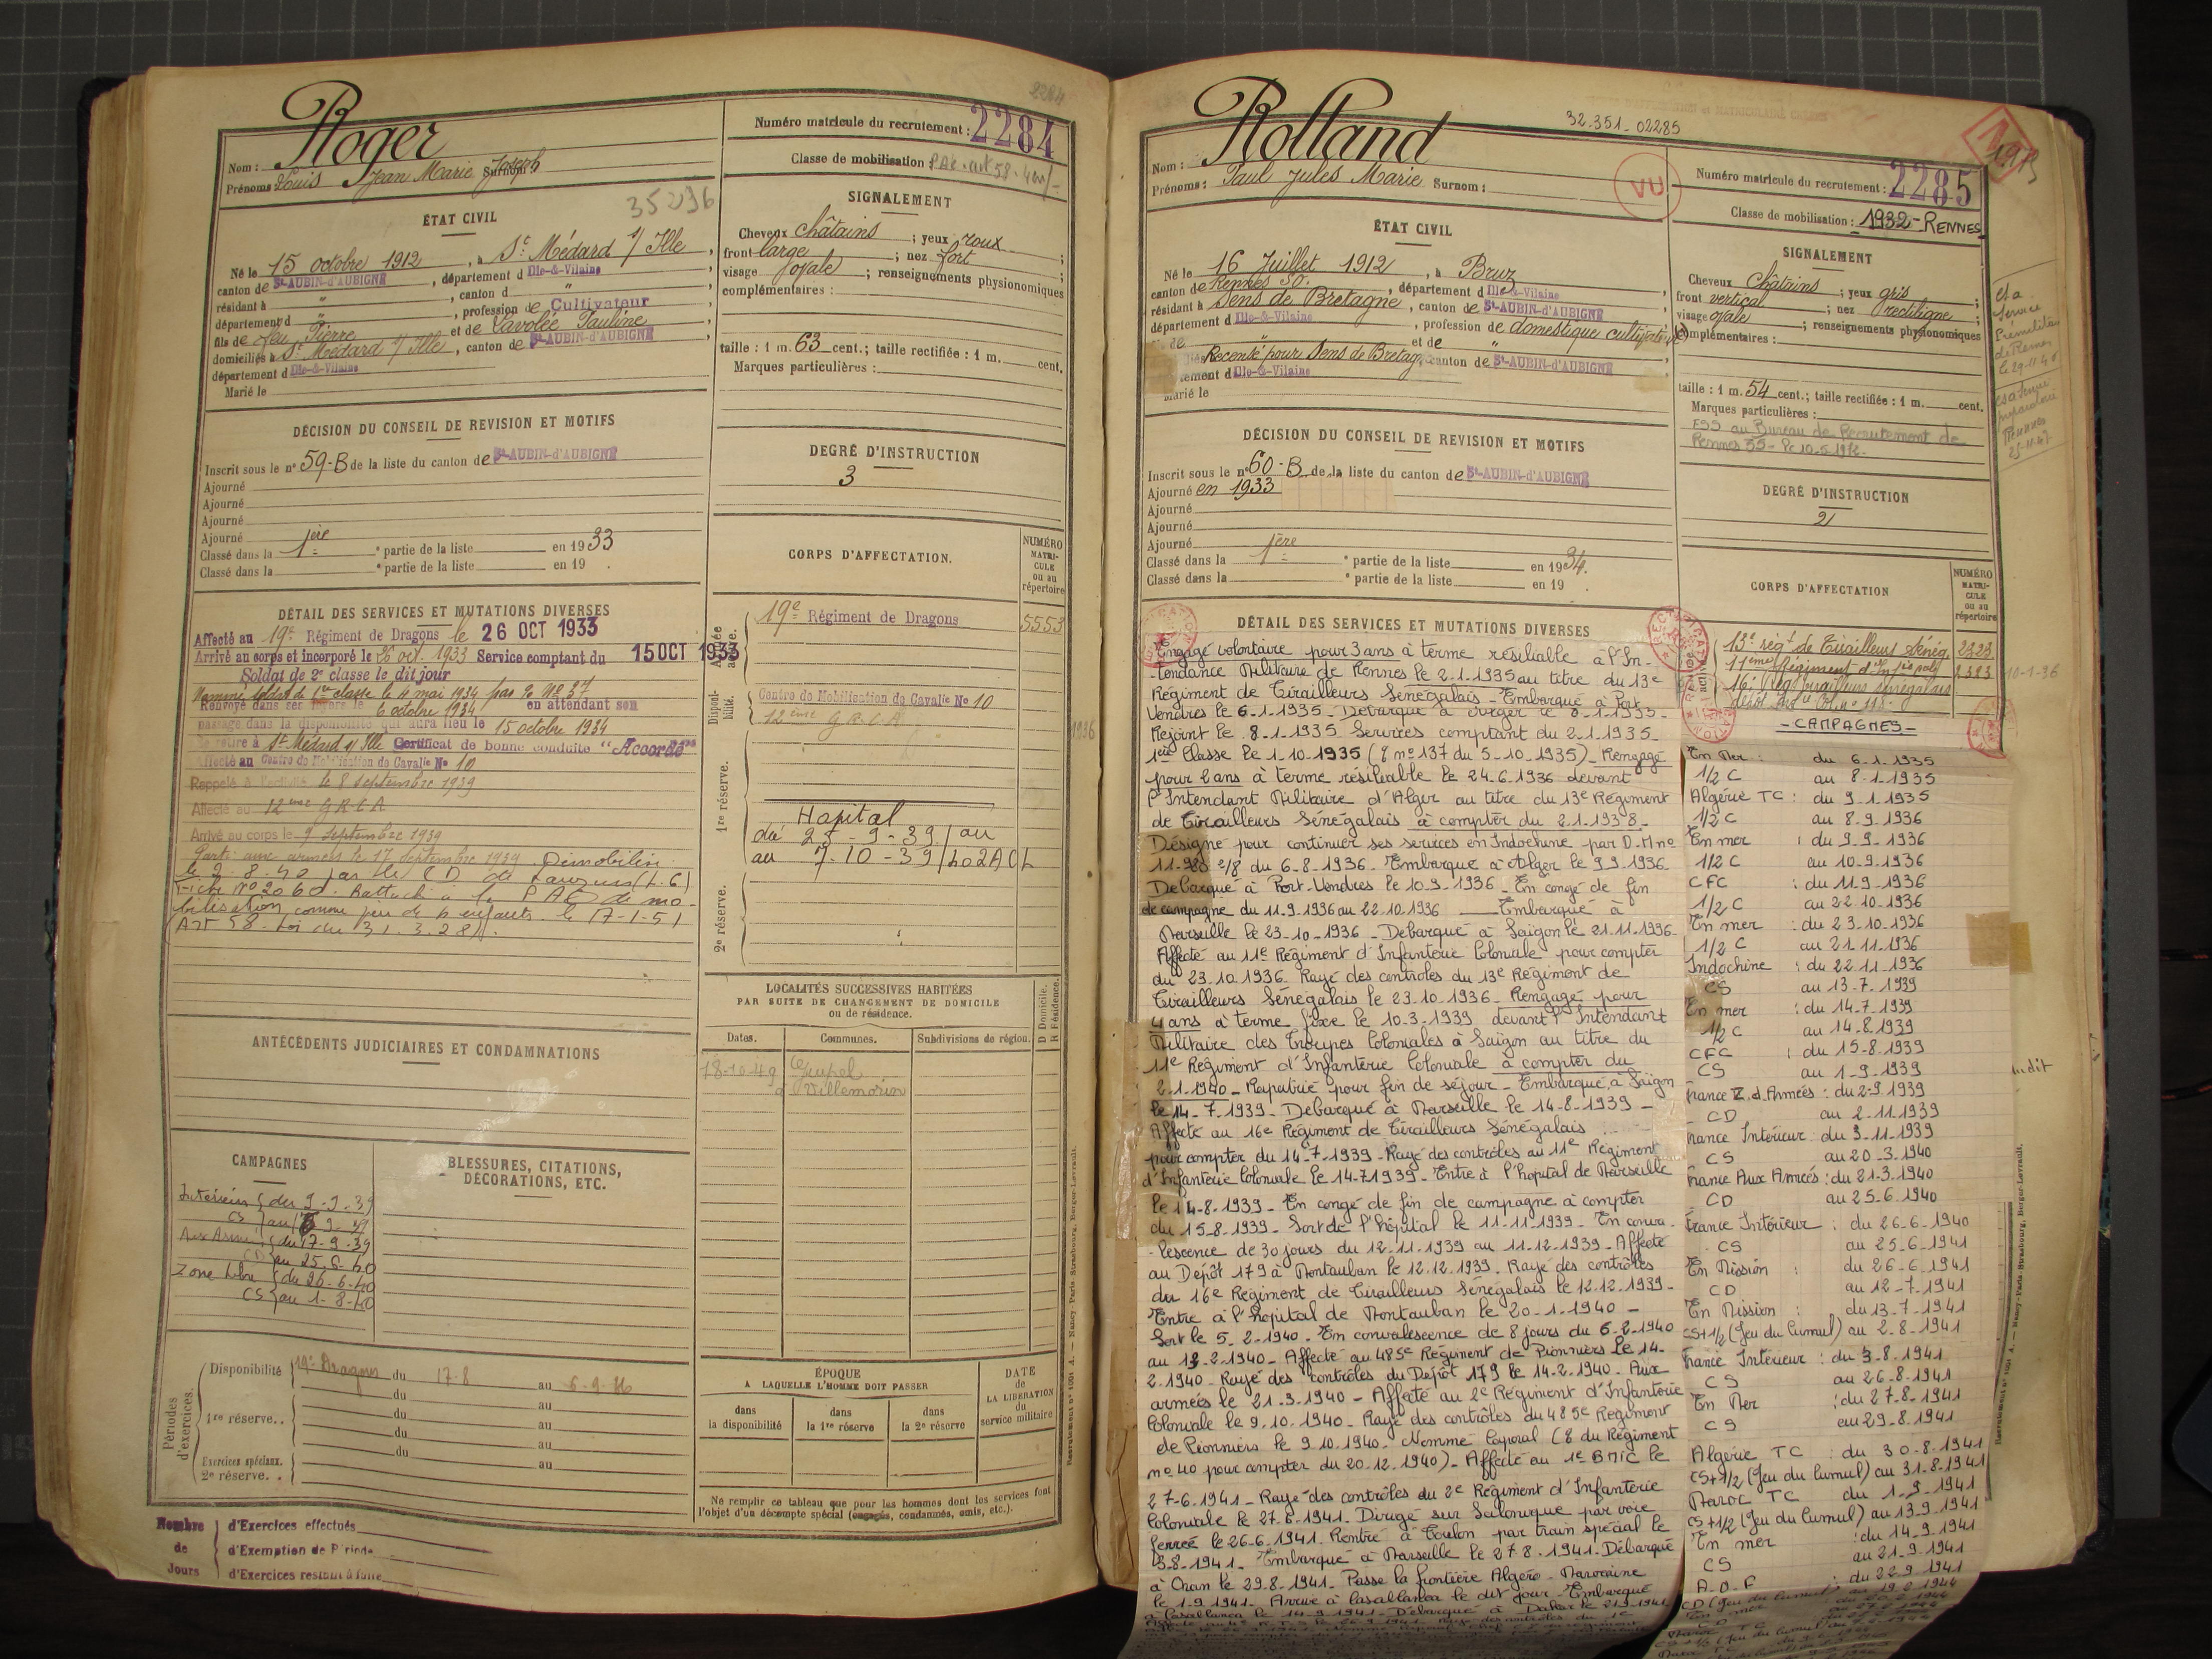 2284
Roger
Nom :
Prénoms : Louis Jean Marie Joseph Surnom :
35296
ÉTAT CIVIL
Né le 15 octobre 1912, à St Médard s/ Ille,
canton de St-AUBIN-d'AUBIGNÉ, département d Ille-&-Vilaine,
résidant à " , canton d "
département d " , profession de Cultivateur
fils de feu Pierre et de Lavolée Pauline,
domiciliés à St Médard s/ Ille, canton de St-AUBIN-d'AUBIGNÉ
département d Ille-&-Vilaine
Marié le
DÉCISION DU CONSEIL DE REVISION ET MOTIFS
Inscrit sous le n° 59-B de la liste du canton de St-AUBIN-d'AUBIGNÉ
Ajourné
Ajourné
Ajourné
Ajourné
Classé dans la 1ère e partie de la liste en 1933
Classé dans la e partie de la liste en 19 .
DÉTAIL DES SERVICES ET MUTATIONS DIVERSES
Affecté au 19e Régiment de Dragons le 26 OCT 1933
Arrivé au corps et incorporé le 26 oct. 1933 Service comptant du 15 OCT 1933
Soldat de 2e classe le dit jour
Nommé soldat de 1re classe le 4 mai 1934
Renvoyé dans ses foyers le 6 octobre 1934 en attendant son
passage dans la disponibilité qui aura lieu le 15 octobre 1934
Se retire à St Médard s/ Ille Certificat de bonne conduite "Accordé"
Affecté au Centre de Mobilisation de Cavalie No 10
Rappelé à l'activité le 8 septembre 1939
Affecté au 12ème G.R.C.A
Arrivé au corps le 9 septembre 1939
Parti aux armées le 17 septembre 1939. Démobilisé
le 2.8.40 par le CD de Lauzun (L.G)
Fiche No 2060. Rattaché à la PAE de mo-
bilisation comme père de 4 enfants le 17-1-51
(Art 58. Loi du 31.3.28).
ANTÉCÉDENTS JUDICIAIRES ET CONDAMNATIONS
CAMPAGNES
Intérieur du 9-9-39
CS au 16 9 39
Aux Armées du 17-9-39
CD au 25-6-40
Zone libre du 26-6-40
CS au 1-8-40
BLESSURES, CITATIONS,
DÉCORATIONS, ETC.
Périodes d'exercices.
Disponibilité 19e Dragons du 17-8 au 6-9-36
du au
1re réserve.. du au
du au
Exercices spéciaux. du au
2e réserve. . au
Nombre de Jours
d'Exercices effectués
d'Exemption de Période
d'Exercices restant à faire
Numéro matricule du recrutement : 2284
Classe de mobilisation : PAE. art 58. 4 enf
SIGNALEMENT
Cheveux châtains ; yeux roux
front large ; nez fort ;
visage ovale ; renseignements physionomiques
complémentaires :
taille : 1 m. 63 cent.; taille rectifiée : 1 m. cent.
Marques particulières :
DEGRÉ D'INSTRUCTION
3
CORPS D'AFFECTATION.
NUMÉRO MATRICULE ou au répertoire
Armée active.
19e Régiment de Dragons 5553
Disponibilité.
Centre de Mobilisation de Cavalie No 10
12ème G.R.C.A
1936
1re réserve.
Hopital
du 25-9-39 au
au 7-10-39
2e réserve.
LOCALITÉS SUCCESSIVES HABITÉES
PAR SUITE DE CHANGEMENT DE DOMICILE
ou de résidence.
D Domicile. R Résidence.
Dates. Communes. Subdivisions de région.
18-10-49
ÉPOQUE
A LAQUELLE L'HOMME DOIT PASSER
DATE de LA LIBÉRATION du service militaire
dans la disponibilité
dans la 1re réserve
dans la 2e réserve
Ne remplir ce tableau que pour les hommes dont les services font
l'objet d'un décompte spécial (engagés, condamnés, omis, etc.).
Rolland
32.351-02285
Nom :
Prénoms : Paul Jules Marie Surnom :
VU
ÉTAT CIVIL
Né le 16 Juillet 1912, à Bruz
canton de Rennes SO., département d Ille-&-Vilaine
résidant à Sens de Bretagne, canton de St-AUBIN-d'AUBIGNÉ
département d Ille-&-Vilaine, profession de domestique cultivateur
et de "
Recensé pour Sens de Bretag, canton de St-AUBIN-d'AUBIGNÉ
département d Ille-&-Vilaine
Marié le
DÉCISION DU CONSEIL DE REVISION ET MOTIFS
Inscrit sous le n° 60-B de la liste du canton de St-AUBIN-d'AUBIGNÉ
Ajourné en 1933
Ajourné
Ajourné
Ajourné
Classé dans la 1ère e partie de la liste en 1934.
Classé dans la e partie de la liste en 19 .
DÉTAIL DES SERVICES ET MUTATIONS DIVERSES
Engagé volontaire pour 3 ans à terme résiliable à l'In-
tendance Militaire de Rennes le 2.1.1935 au titre du 13e
Régiment de Tirailleurs Sénégalais - Embarqué à Port
Vendres le 6.1.1935 - Débarqué à Alger le 8.1.1935 -
Rejoint le 8.1.1935 Services comptant du 2.1.1935 -
1ère Classe le 1.10.1935 (O n° 137 du 5.10.1935) - Rengagé
pour 2 ans à terme résiliable le 24.6.1936 devant
l'Intendant Militaire d'Alger au titre du 13e Régiment
de Tirailleurs Sénégalais à compter du 2.1.1938 -
Désigné pour continuer ses services en Indochine par D.M n°
11.980 2/8 du 6.8.1936. Embarqué à Alger le 9.9.1936.
Débarqué à Port-Vendres le 10.9.1936 - En congé de fin
de campagne du 11.9.1936 au 22.10.1936 - Embarqué à
Marseille le 23.10.1936 - Débarqué à Saigon le 21.11.1936 -
Affecté au 11e Régiment d'Infanterie Coloniale pour compter
du 23.10.1936. Rayé des contrôles du 13e Régiment de
Tirailleurs Sénégalais le 23.10.1936 - Rengagé pour
4 ans à terme fixe le 10.3.1939 devant l'Intendant
Militaire des Troupes Coloniales à Saigon au titre du
11e Régiment d'Infanterie Coloniale à compter du
2.1.1940 - Rapatrié pour fin de séjour - Embarqué à Saigon
le 14.7.1939 - Débarqué à Marseille le 14.8.1939 -
Affecté au 16e Régiment de Tirailleurs Sénégalais
pour compter du 14.7.1939 - Rayé des contrôles au 11e Régiment
d'Infanterie Coloniale le 14.7.1939 - Entré à l'hopital de Marseille
le 14.8.1939 - En congé de fin de campagne à compter
du 15.8.1939 - Sort de l'hôpital le 11.11.1939 - En conva-
-lescence de 30 jours du 12.11.1939 au 11.12.1939 - Affecté
au Dépôt 179 à Montauban le 12.12.1939. Rayé des contrôles
du 16e Régiment de Tirailleurs Sénégalais le 12.12.1939 -
Entre à l'hôpital de Montauban le 20.1.1940 -
Sort le 5.2.1940 - En convalescence de 8 jours du 6.2.1940
au 13.2.1940 - Affecté au 485e Régiment de Pionniers le 14-
2.1940 - Rayé des contrôles du Dépôt 179 le 14.2.1940. Aux
armées le 21.3.1940 - Affecté au 2e Régiment d'Infanterie
Coloniale le 9.10.1940 - Rayé des contrôles du 485e Régiment
de Pionniers le 9.10.1940. Nommé Caporal (O du Régiment
n° 40 pour compter du 20.12.1940) - Affecté au 1e BMIC le
27.6.1941 - Rayé des contrôles du 2e Régiment d'Infanterie
Coloniale le 27.6.1941. Dirigé sur Salonique par voie
ferrée le 26.6.1941. Rentré à Toulon par train spécial le
3.8.1941. Embarqué à Marseille le 27.8.1941. Débarqué
à Oran le 29.8.1941. Passe la frontière Algéro-Marocaine
le 1.9.1941. Arrive à Casablanca le dit jour - Embarqué
à Casablanca le 14.9.1941. Débarqué à Dakar le 21.9.1941
Numéro matricule du recrutement : 2285
Classe de mobilisation : 1932 - RENNES
SIGNALEMENT
Cheveux Châtains ; yeux gris ;
front vertical ; nez rectiligne ;
visage ovale ; renseignements physionomiques
complémentaires :
taille : 1 m. 54 cent.; taille rectifiée : 1 m. cent.
Marques particulières :
FSS au Bureau de Recrutement de
Rennes 35 -
DEGRÉ D'INSTRUCTION
2
CORPS D'AFFECTATION
NUMÉRO MATRICULE ou au répertoire
13e régt de Tirailleurs Sénég. 2323
11ème Régiment d'Infie colo 2383
10-1-36
16e Rég Tirailleurs sénégalais
- CAMPAGNES -
En Mer : du 6.1.1935
1/2 C au 8.1.1935
Algérie TC : du 9.1.1935
1/2 C au 8.9.1936
En mer : du 9.9.1936
1/2 C au 10.9.1936
CFC : du 11.9.1936
1/2 C au 22.10.1936
En mer : du 23.10.1936
1/2 C au 21.11.1936
Indochine : du 22.11.1936
CS au 13.7.1939
En mer : du 14.7.1939
1/2 C au 14.8.1939
CFC : du 15.8.1939
CS au 1.9.1939
France Z.d.Armées : du 2.9.1939
CD au 2.11.1939
France Intérieur : du 3.11.1939
CS au 20.3.1940
France Aux Armées : du 21.3.1940
CD au 25.6.1940
France Intérieur : du 26.6.1940
CS au 25.6.1941
En Mission : du 26.6.1941
CD au 12.7.1941
En Mission : du 13.7.1941
CS+1/2 (Jeu du Cumul) au 2.8.1941
France Intérieur : du 3.8.1941
CS au 26.8.1941
En Mer : du 27.8.1941
CS au 29.8.1941
Algérie TC : du 30.8.1941
CS+1/2 (Jeu du Cumul) au 31.8.1941
Maroc TC du 1.9.1941
CS+1/2 (Jeu du Cumul) au 13.9.1941
En mer : du 14.9.1941
CS au 21.9.1941
A.O.F : du 22.9.1941